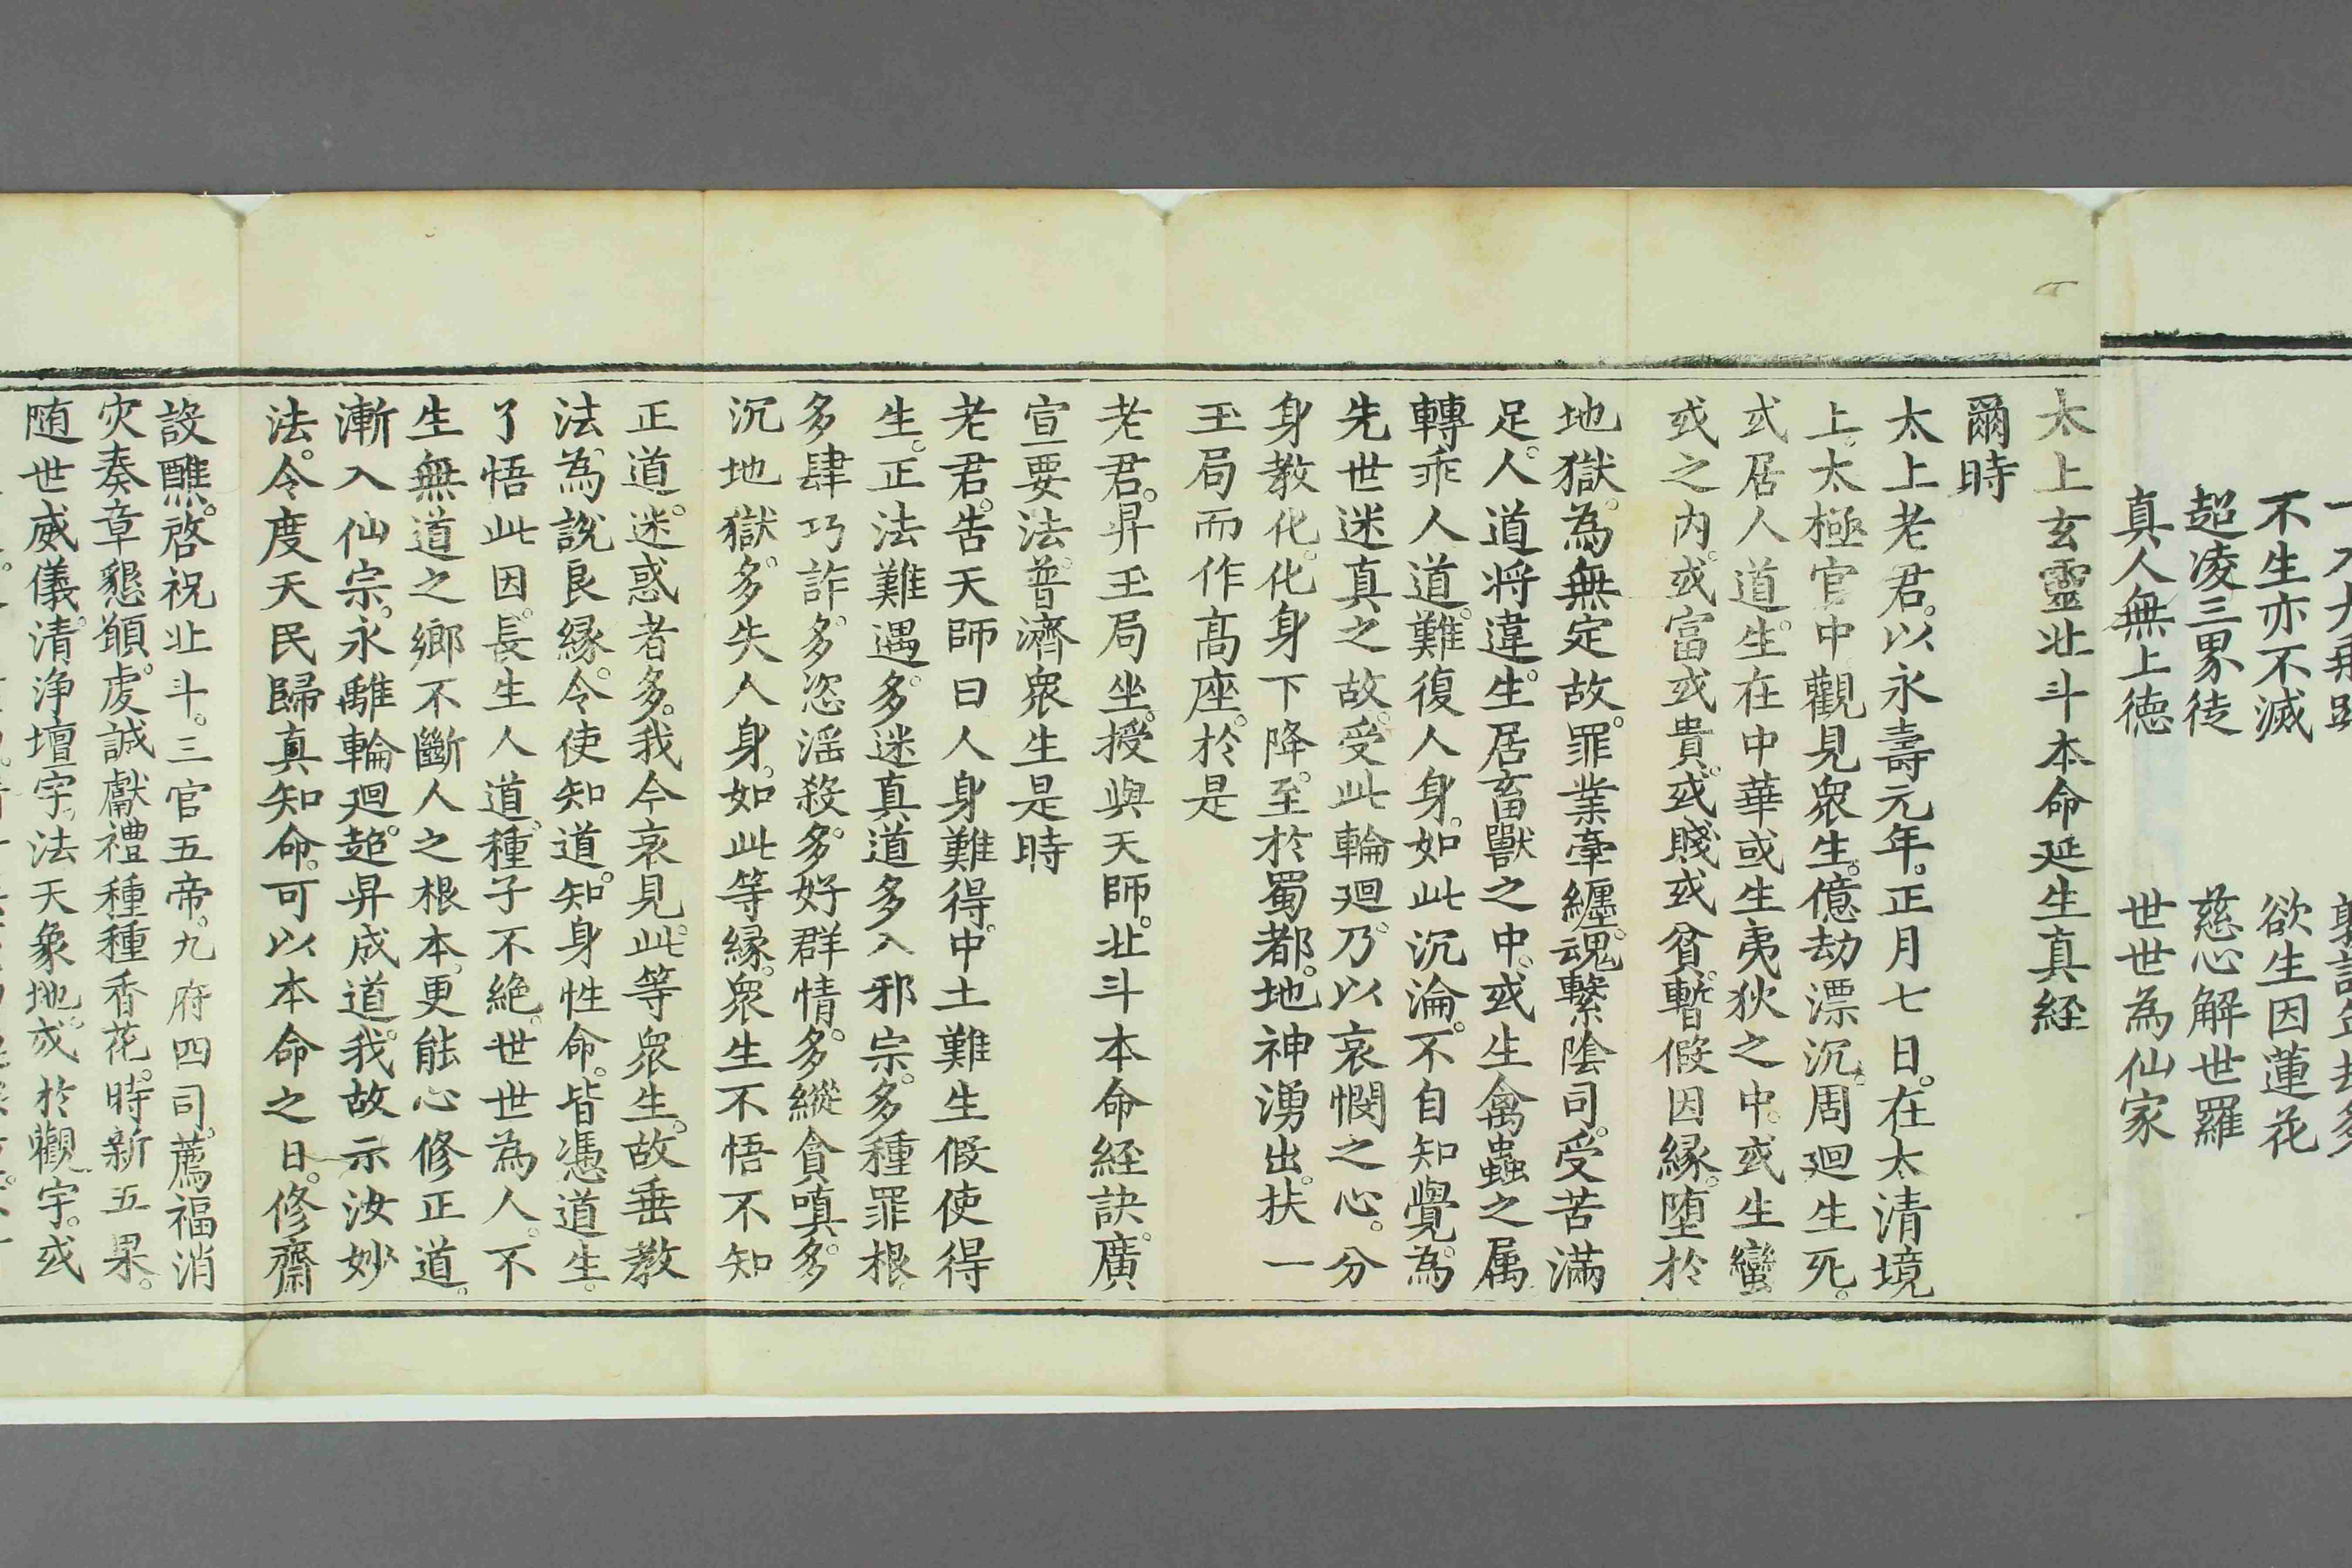 不生亦不滅　欲生因蓮花
超凌三界徒　慈心解世羅
真人無上德　世世為仙家
太上玄靈北斗本命延生真経
爾時
太上老君。以永壽元年。正月七日。在太清境
上。太極宮中觀見衆生。億劫漂沉。周迴生死。
或居人道。生在中華或生夷狄之中。或生蠻
戎之内。或富或貴。或賤或貧。暫假因縁。堕於
地獄。為無定故。罪業牽纏。魂繫陰司。受苦滿
足。人道将違。生居畜獸之中。或生禽蟲之属
轉乖人道。難復人身。如此沉淪。不自知覺。為
先世迷真之故。受此輪廻。乃以哀憫之心。分
身教化。化身下降。至於蜀都。地神湧出。扶一
玉局而作高座。於是
老君。昇玉局坐。授與天師。北斗本命経訣。廣
宣要法。普濟衆生是時
老君。告天師曰人身難得。中土難生假使得
生。正法難遇。多迷真道多入邪宗。多種罪根。
多肆巧詐。多恣滛殺。多好群情。多縱貪嗔。多
沉地獄。多失人身。如此等縁。衆生不悟不知
正道。迷惑者多。我今哀見此。等衆生。故垂教
法。為說良縁。令使知道。知身性命。皆憑道生。
了悟此因。長生人道。種子不絶。世世為人。不
生無道之鄉不斷人之根本。更能心修正道。
漸入仙宗。永離輪廻。超昇成道。我故示汝妙
法。令度天民歸真知命。可以本命之日。修齋
設醮。啓祝北斗。三官五帝。九府四司。薦福消
灾奏章懇願。虔誠獻禮種種香花。時新五果。
随世威儀。清浄壇宇。法天象地。或於觀宇。或